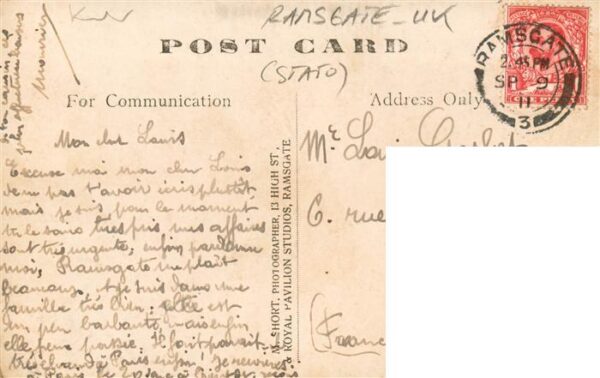 RAMSGATE_UK
POST CARD
(STATO)
For Communication
Address Only
RAMSGATE
2.45 PM
SP 9
11
3
Mon cher Louis
Excuse moi mon cher Louis
de ne pas t'avoir écris plutôt
mais je suis pour le moment
le soir très pris, mes affaires
sont très urgente, enfin pardonne
moi, Ramsgate me plaît
beaucoup, et je suis dans une
famille très bien; elle est
un peu barbante, mais enfin
elle peux passée. Il fait paraît
très chaud à Paris enfin, je
M. SHORT, PHOTOGRAPHER, 13 HIGH ST,
& ROYAL PAVILION STUDIOS, RAMSGATE
Mr Louis
6. rue
(France
ton cousin qui
Maurice